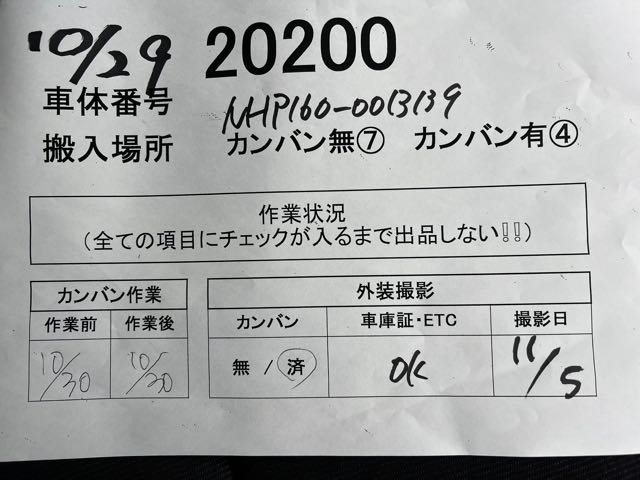 10/29 20200
車体番号 NHP160-0013139
搬入場所 カンバン無⑦ カンバン有④
作業状況
(全ての項目にチェックが入るまで出品しない!!)
カンバン作業
作業前 作業後
10/30 10/30
外装撮影
カンバン 車庫証・ETC 撮影日
無 / 済 OK 11/5